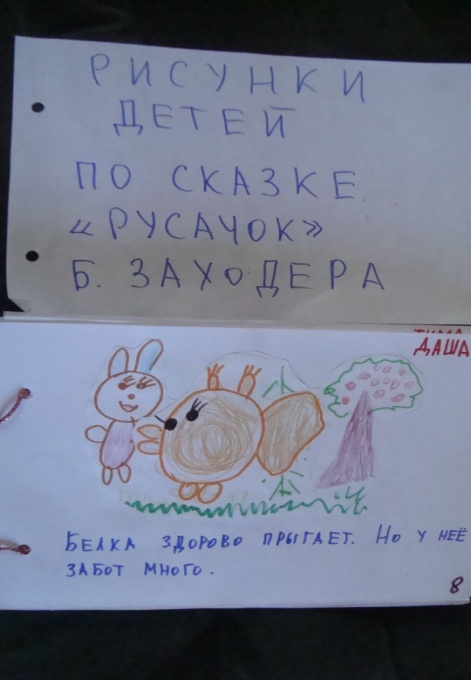 РИСУНКИ
ДЕТЕЙ
ПО СКАЗКЕ
«РУСАЧОК»
Б. ЗАХОДЕРА
ДАША
БЕЛКА ЗДОРОВО ПРЫГАЕТ. НО У НЕЁ
ЗАБОТ МНОГО.
8